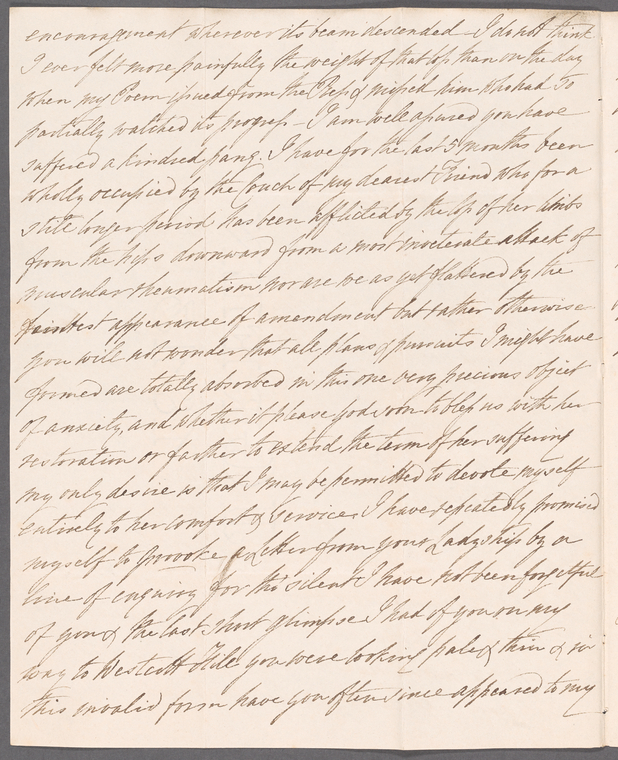 encouragement wherever its beam descended – I do not think
I ever felt more painfully the weight of that loss than on the day
when my Poem issued from the Press & missed him who had so
partially watched its progress – I am well assured you have
suffered a kindred pang. I have for the last 5 months been
wholly occupied by the Couch of my dearest Friend who for a
still longer period has been afflicted by the loss of her limbs
from the hips downward from a most inveterate attack of
muscular rheumatism nor are we as yet flattered by the
faintest appearance of amendment but rather otherwise
you will not wonder that all plans & pursuits I might have
formed are totally absorbed in this one very precious object
of anxiety, and whether it please God soon to bless us with her
restoration or farther to extend the term of her suffering
my only desire is that I may be permitted to devote myself
entirely to her comfort & service. I have repeatedly promised
myself to provoke a Letter from your Ladyship by a
line of enquiry for tho' silent I have not been forgetful
of you & the last short glimpse I had of you on my
way to Westcott Hill you were looking pale & thin & in
this invalid form have you often since appeared to my